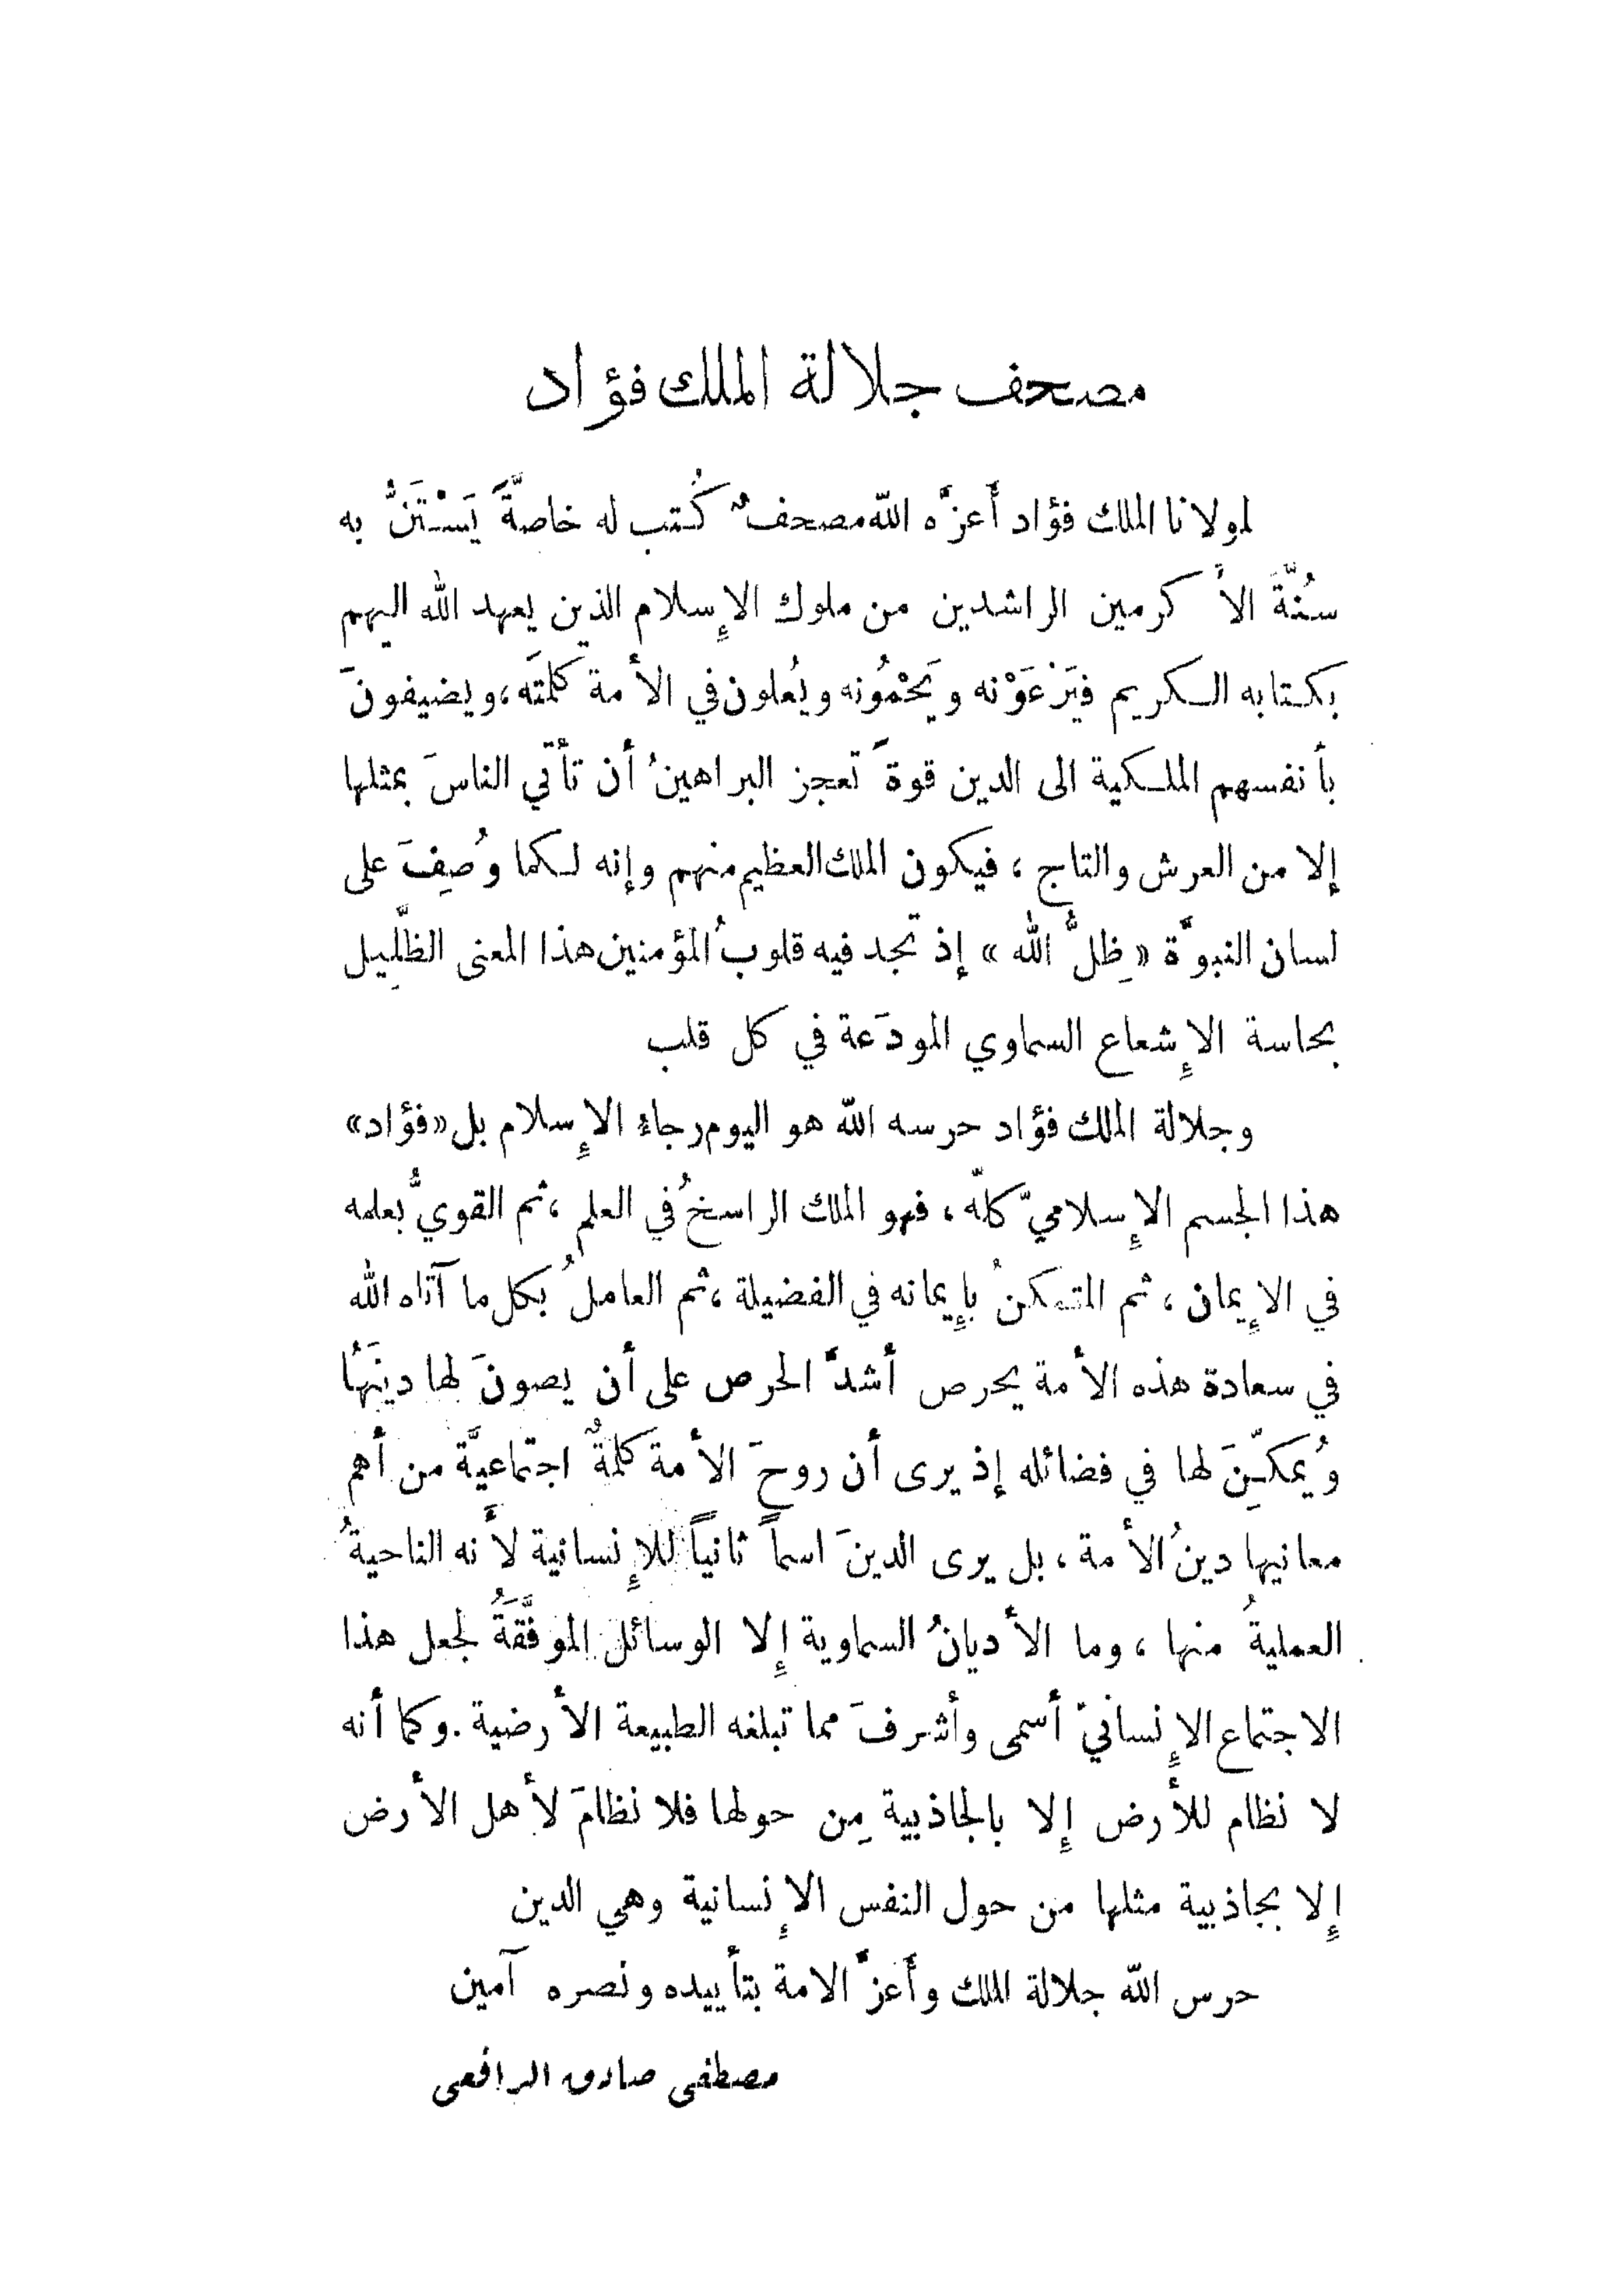 مصحف جلالة الملك فؤاد
لمولانا الملك فؤاد أعزَّه اللّه مصحفٌ كُتب له خاصَّةً يَسْتَنُّ به
سُنَّةَ الأكرمين الراشدين من ملوك الإسلام الذين يعهد الله اليهم
بكتابه الكريم فيَرْعَوْنه ويَحْمُونه ويُعلون في الأمة كلمتَه، ويضيفونَ
بأنفسهم الملكية الى الدين قوةً تعجز البراهينُ أن تأتي الناسَ بمثلها
إلا من العرش والتاج ، فيكون الملك العظيم منهم وإنه لكما وُصِفَ على
لسان النبوَّة « ظِلُّ الله » إذ تجد فيه قلوبُ المؤمنين هذا المعنى الظّلِيل
بحاسة الإشعاع السماوي المودَعة في كل قلب
وجلالة الملك فؤاد حرسه اللّه هو اليوم رجاءُ الإسلام بل «فؤاد»
هذا الجسم الإسلاميّ كلّه ، فهو الملك الراسخُ في العلم ، ثم القويُّ بعلمه
في الإيمان ، ثم المتمكنُ بإيمانه في الفضيلة ، ثم العاملُ بكل ما آتاه الله
في سعادة هذه الأمة يحرص أشدَّ الحرص على أن يصونَ لها دينَها
ويُمكّنَ لها في فضائله إذ يرى أن روحَ الأمة كلمةٌ اجتماعيَّة من أهم
معانيها دينُ الأمة ، بل يرى الدينَ اسماً ثانياً للإنسانية لأنه الناحيةُ
العمليةُ منها ، وما الأديانُ السماوية إلا الوسائل الموفَّقةُ لجعل هذا
الاجتماع الإنسانيّ أسمى وأشرفَ مما تبلغه الطبيعة الأرضية . وكما أنه
لا نظام للأرض إلا بالجاذبية مِن حولها فلا نظامَ لأهل الأرض
إلا بجاذبية مثلها من حول النفس الإنسانية وهي الدين
حرس اللّه جلالة الملك وأعزَّ الامة بتأييده ونصره آمين
مصطفى صادق الرافعى